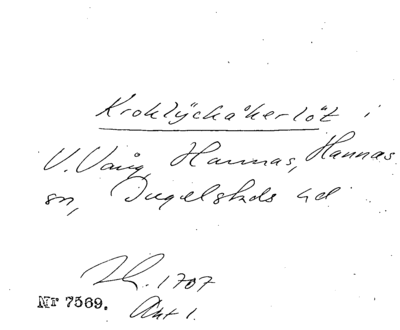 Kroklyckåkerlöt i
V. Vång, Hannas, Hannas
sn, Ingelstads hd
1707
Akt 1.
Nr 7569.